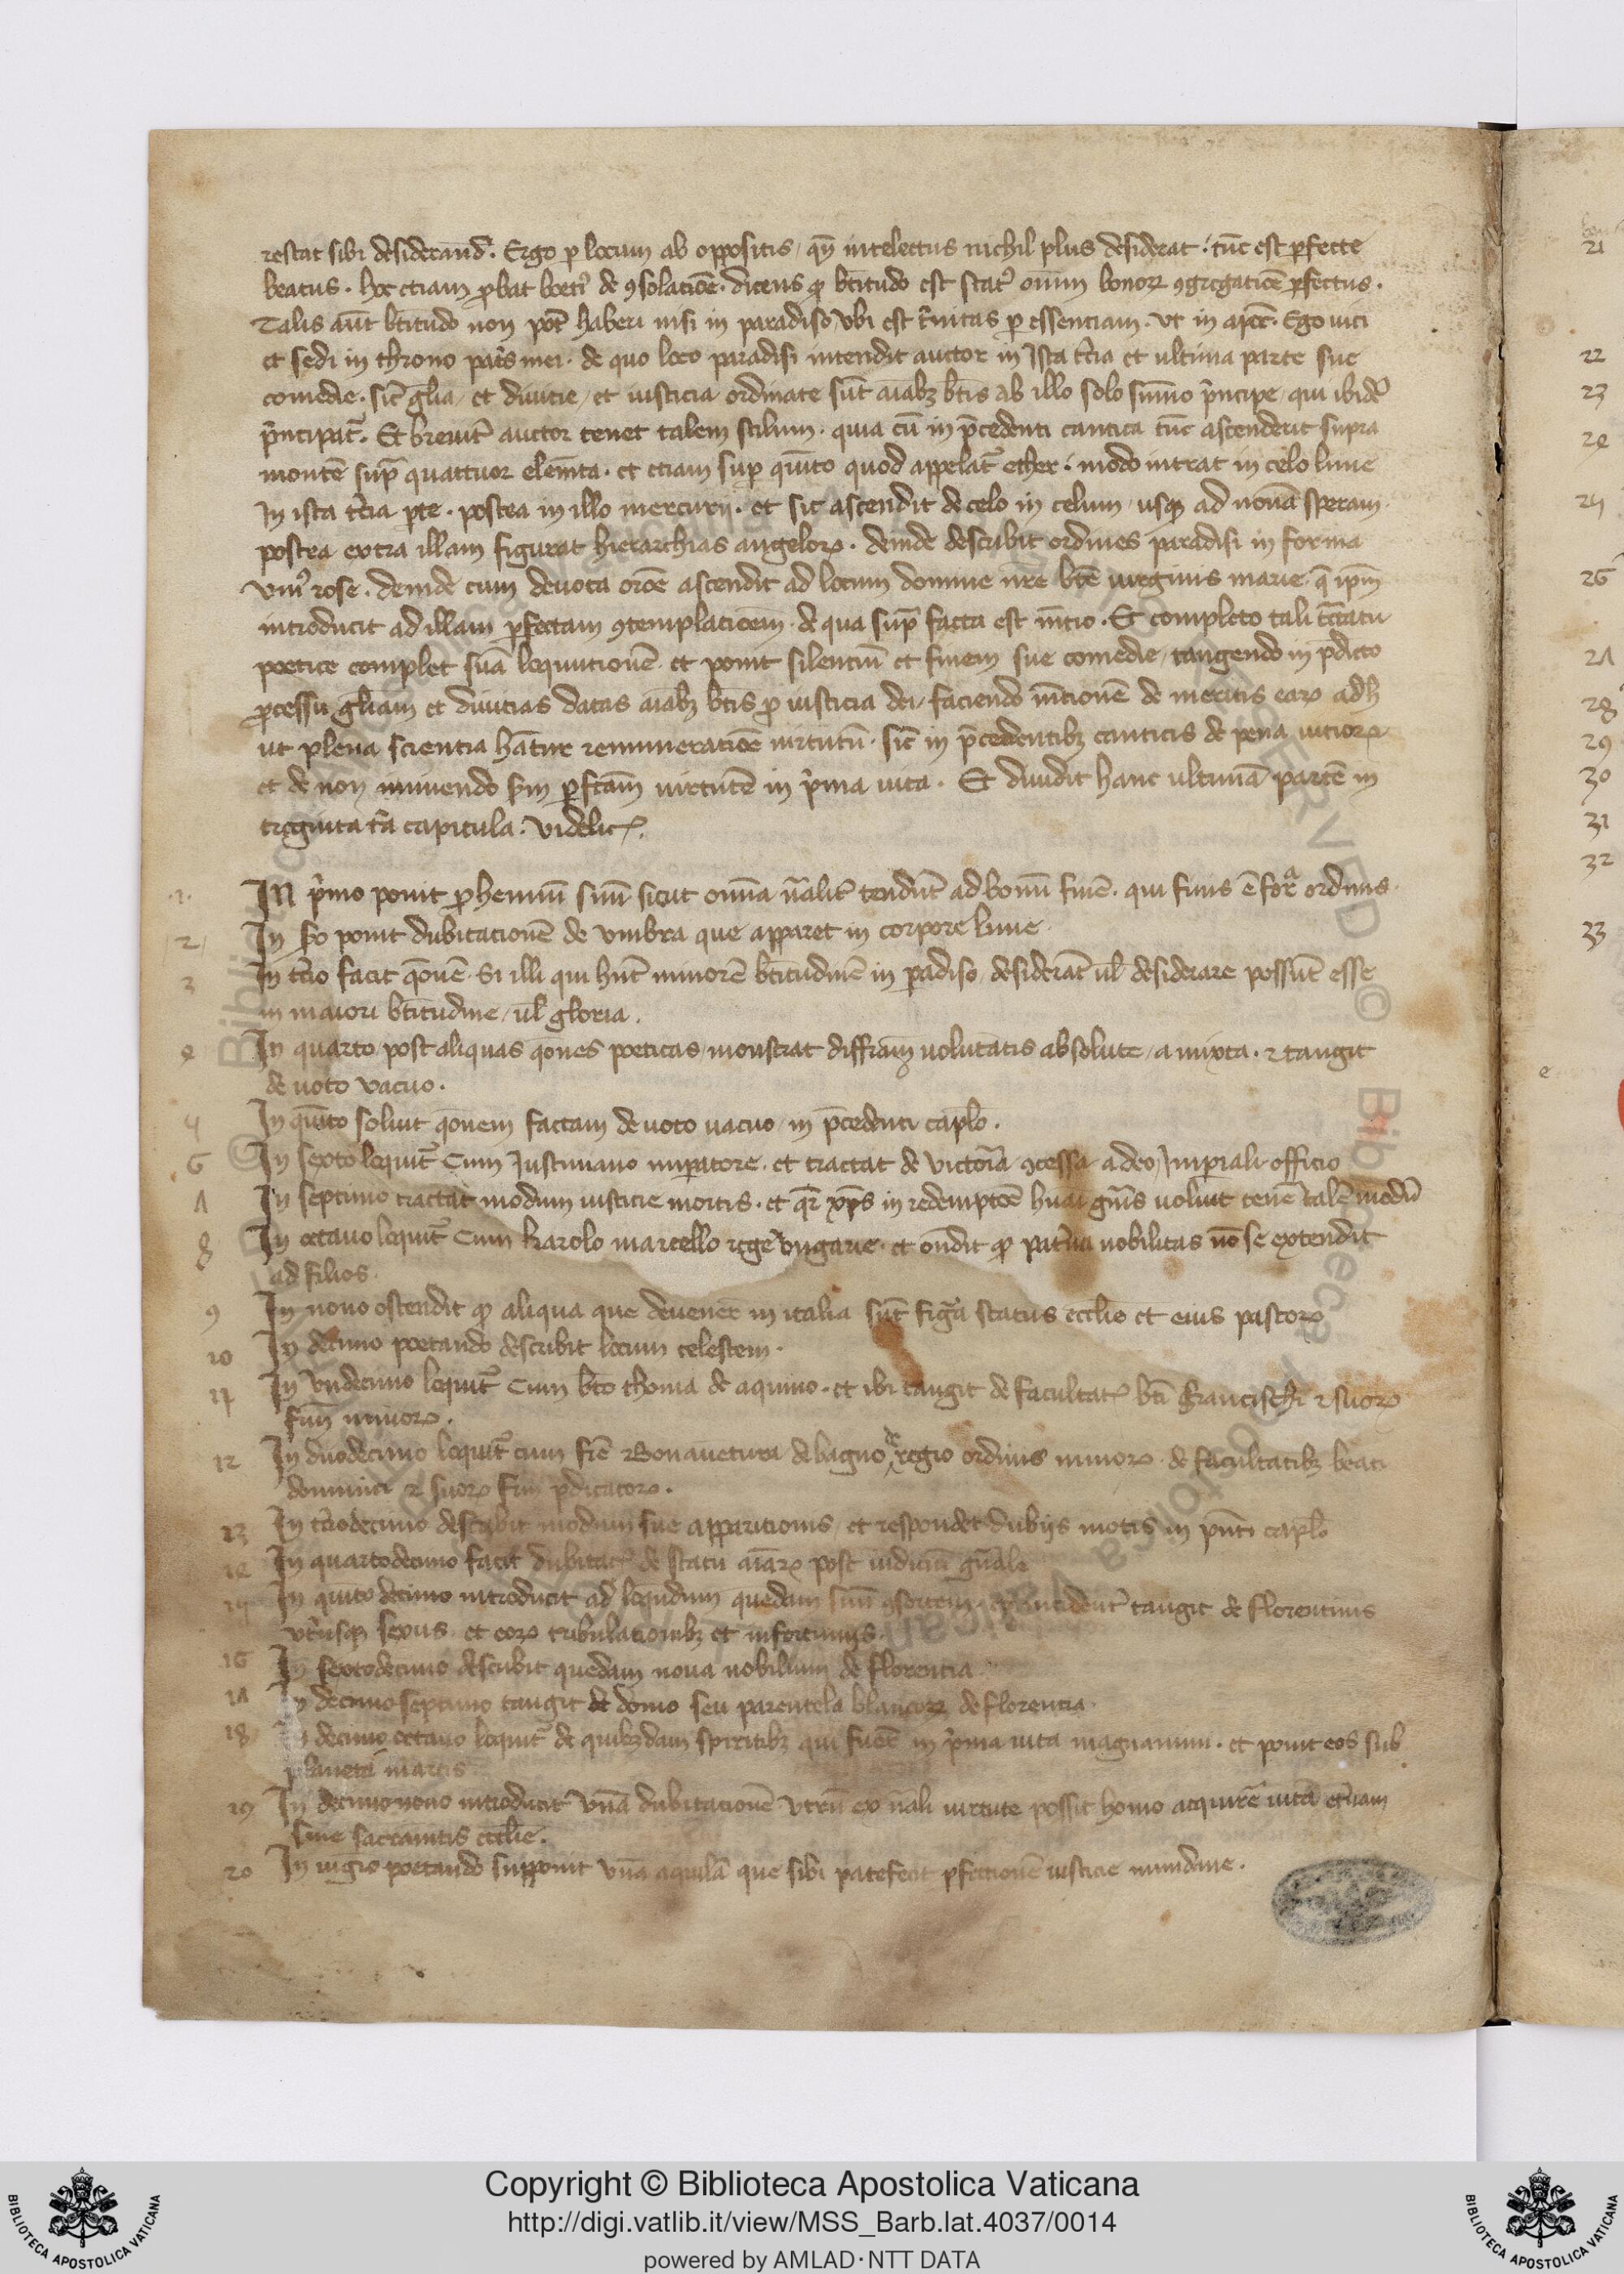 restat sibi desiderand᷒. Ergo ꝑ locum ab oppositis / qn̄ intelectus nichil plus desiderat · tūc est ꝑfecte
beatus · hoc etiam ꝓbat boeti᷒ de ꝯsolatiōe · dicens ꝙ btitudo est stat᷒ omīm bonoꝝ ꝯgregatiōe ꝑfectus ·
Talis aūt btitudo non pōt haberi nisi in paradiso / vbi est t̄nitas ꝑ essenciam · vt in apoc̄ · Ego vici
et sedi in throno pat̄s mei · de quo loco paradisi intendit auctor in ista t̄cia et ultima parte sue
comedie · sic̄ gl̄ia / et diuitie / et iusticia ordinate sūt aīabꝫ btīs ab illo solo sūmo p̄ncipe / qui ibidē
p̄ncipat᷒ · Et breuit̄ auctor tenet talem stilum · quia cū in p̄cedenti cantica tūc ascenderit supra
montē sup̄ quattuor elem̄ta · et etiam suꝑ qūito quod appelat᷒ ether · modo intrat in celo lune
In ista t̄cia ꝑte · postea in illo mercurij · et sic ascendit de celo in celum / usqꝫ ad nonā speram ·
postea extra illam figurat hierarchias angeloꝝ · deinde describit ordines paradisi in forma
vni᷒ rose · deinde cum deuota orōe ascendit ad locum domine nr̄e btē uirginis marie · q̄ ipm̄
introducit ad illam ꝑfectam ꝯtemplaciōem · de qua sup̄ facta est m̄tio · Et completo tali t̄ctatu
poetice complet suā loqnutionē · et ponit silenciū et finem sue comedie / tangendo in p̄dicto
ꝓcessu gl̄iam et diuitias datas aīabꝫ btīs ꝓ iusticia dei / faciendo m̄tionē de meritis eaꝝ adh̄
ut plena scientia hātur remuneratiōe uirtutū · sic̄ in p̄cedentibꝫ canticis de pena uicioꝝ
et de non minuendo sm̄ ꝑfc̄am uirtutē in p̄ma uita · Et diuidit hanc ultimā partē in
triginta t̄a capitula · videlicꝫ ·
·1· IN p̄mo ponit ꝓhemiū suū sicut om̄ia n̄alit̄ tendūt ad bonū finē · qui finis ē forᵃ ordinis ·
2 In s̄o ponit dubitacionē de vmbra que apparet in corpore lune ·
3 In t̄cio facit qōnē · Si illi qui hn̄t minorē btitudinē in paradiso / desiderāt ul̄ desiderare possūt esse
in maiori btitudine / ul̄ gloria ·
4 In quarto / post aliquas qōnes poeticas / monstrat diffr̄iam uolūtatis absolute / a mixta · ⁊ tangit
de uoto vacuo ·
5 In qūito soluit qōnem factam de uoto uacuo / in p̄cedenti capl̄o ·
6 In sexto loquit᷒ Cum Justiniano imꝑatore · et tractat de victoria ꝯcessa a deo / Imꝑiali officio
7 In septimo tractat modum iusticie mortis · et qr̄e xp̄s in redemptōe hūai gn̄is uoluit tenē talē modū
8 In octauo loquit᷒ Cum karolo martello rege vngarie · et on̄dit ꝙ pat̄na nobilitas nō se extendit
ad filios ·
9 In nono ostendit ꝙ aliqua que deuenēt in italia sūt figᷓa status eccl̄ie et eius pastoꝝ
10 In decimo poetando describit locum celestem ·
11 In vndecimo loquit᷒ Cum btō thoma de aquino · et ibi tangit de facultatꝫ btī francischi ⁊ suoꝝ
frm̄ minoꝝ ·
12 In duodecimo loquit᷒ cum fr̄e Bonauētura de bagno de regio ordinis minoꝝ · de facultatibꝫ beati
dominici ⁊ suoꝝ frm̄ p̄dicatoꝝ ·
13 In t̄ciodecimo describit modum sue apparitionis / et respondet dubijs motis in pn̄ti capl̄o
14 In quartodecimo facit dubitatꝫ de statu aīaꝝ post iudiciū gn̄ale
15 In quīto decimo introducit ad loqndum quedam suū ꝯsortem · et incident̄ tangit de florentinis
vt̄usqꝫ sexus · et eoꝝ tribulationibꝫ et infortunijs ·
16 In sextodecimo describit quedam noua nobilium de florentia ·
17 In decimo septimo tangit de domo seu parentela blancoꝝ de florentia ·
18 In decimo octauo loquit᷒ de quibꝫdam spiritibꝫ qui fuēt in p̄ma uita magnanimi · et ponit eos sub
planeta martis
19 In decimo nono introducit vnā dubitacionē vtrū ex n̄ali uirtute possit homo acquirē uitā et̄nam
sine sacram̄tis eccl̄ie ·
20 In uigīo poetando supponit vnā aquilā que sibi patefecit ꝑfectionē iusticie mundane ·
21
22
23
24
25
26
27
28
29
30
31
32
33
Copyright © Biblioteca Apostolica Vaticana
http://digi.vatlib.it/view/MSS_Barb.lat.4037/0014
powered by AMLAD·NTT DATA
BIBLIOTECA APOSTOLICA VATICANA
BIBLIOTECA APOSTOLICA VATICANA